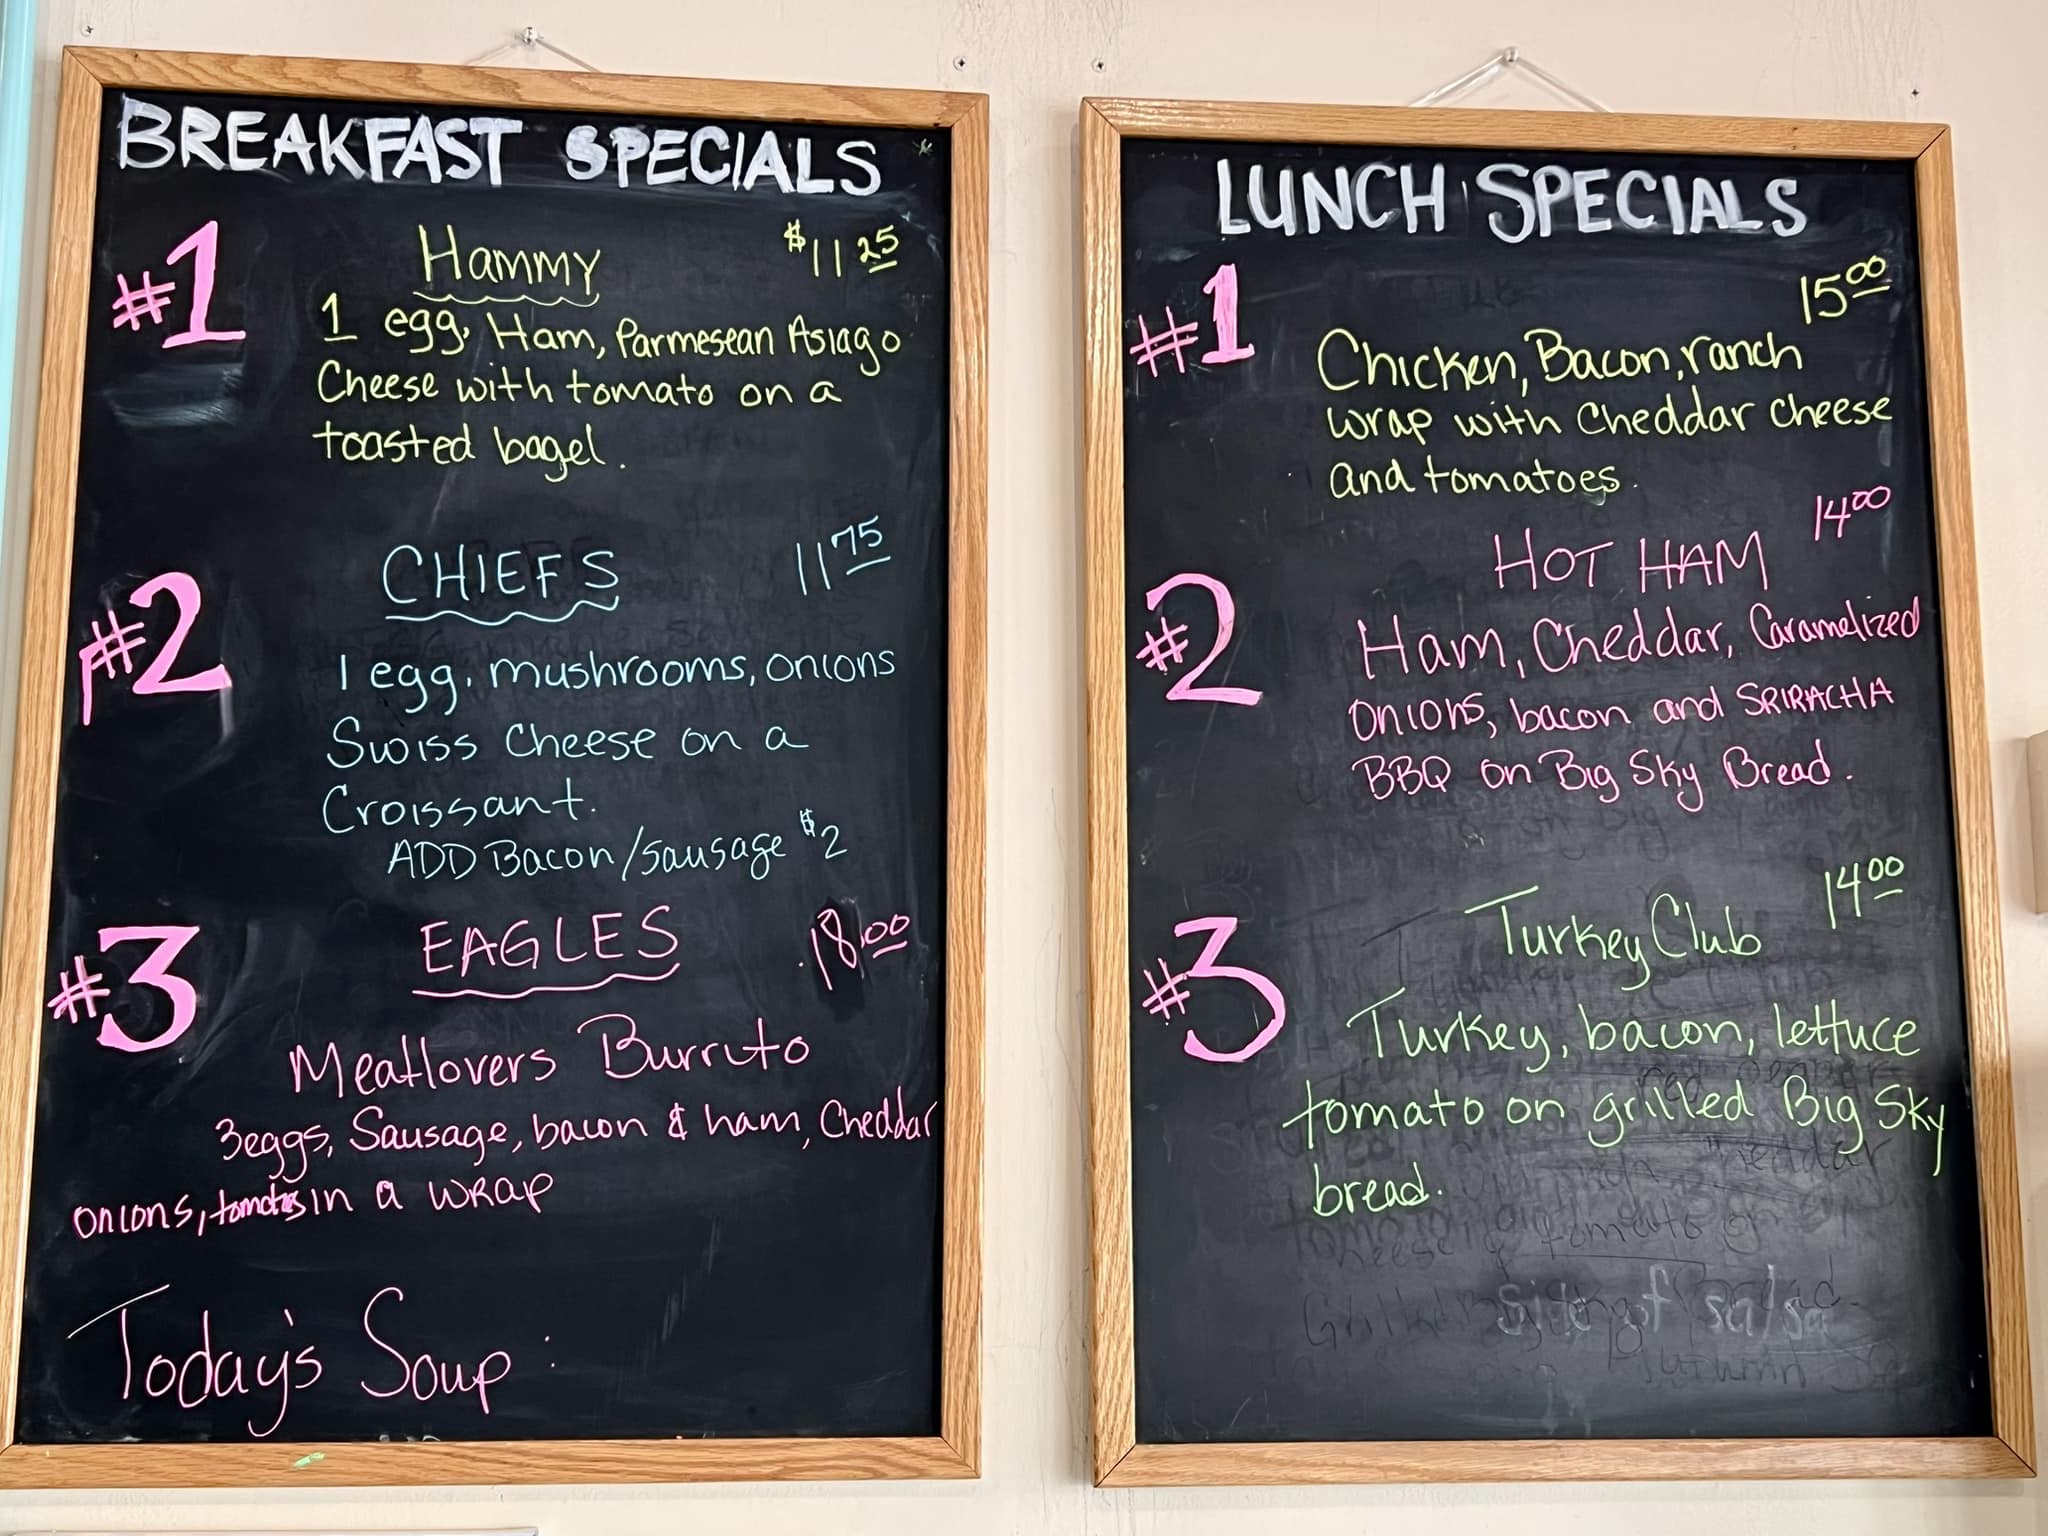 BREAKFAST SPECIALS
#1
HAMMY
$11 25
1 egg, Ham, Parmesean Asiago
Cheese with tomato on a
toasted bagel.
#2
CHIEFS
11 75
1 egg, mushrooms, onions
Swiss Cheese on a
Croissant.
ADD Bacon/sausage $2
#3
EAGLES
18.00
Meatlovers Burrito
3eggs, Sausage, bacon & ham, Cheddar
onions, tomatoes in a wrap
Today's Soup:
LUNCH SPECIALS
#1
15 00
Chicken, Bacon, ranch
wrap with Cheddar cheese
and tomatoes.
#2
14 00
HOT HAM
Ham, Cheddar, Caramelized
onions, bacon and SRIRACHA
BBQ on Big Sky Bread.
#3
14 00
Turkey Club
Turkey, bacon, lettuce
tomato on grilled Big Sky
bread.
of salsa